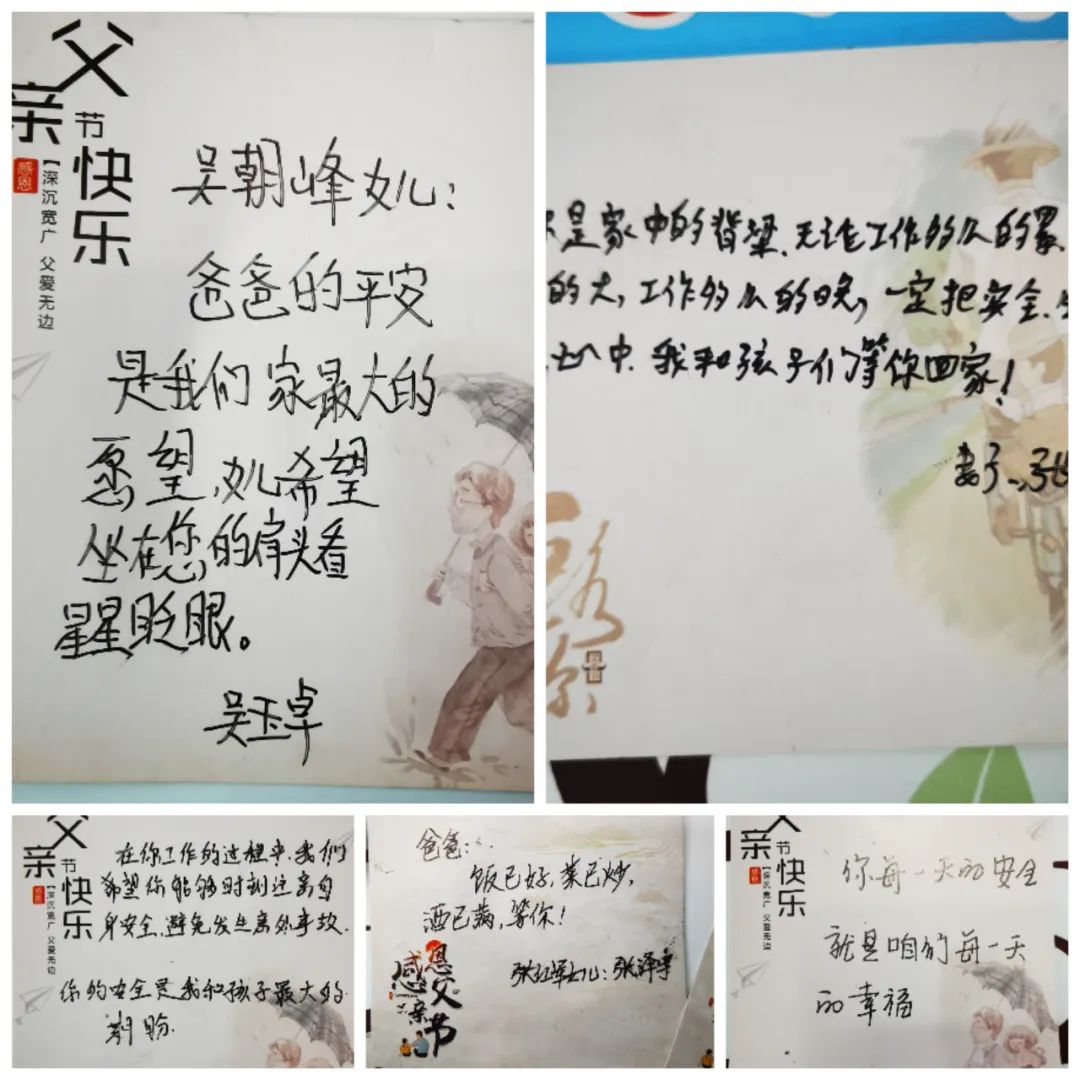 父亲节快乐
感恩
【深沉宽广 父爱无边
吴朝峰女儿：
爸爸的平安
是我们家最大的
愿望,女儿希望
坐在您的肩头看
星星眨眼。
吴玉卓
是家中的脊梁.无论工作多么的累
的大,工作多么的晚,一定把安全.
中.我和孩子们等你回家!
妻子
父亲节快乐
感恩
【深沉宽广 父爱无边
在你工作的过程中.我们
希望你能够时刻注意自
身安全.避免发生意外事故.
你的安全是我和孩子最大的
期盼.
爸爸:
饭已好,菜已炒,
酒已满,等你!
女儿:张泽宇
感恩父亲节
父亲节快乐
感恩
【深沉宽广 父爱无边
你每一天的安全
就是咱们每一天
的幸福